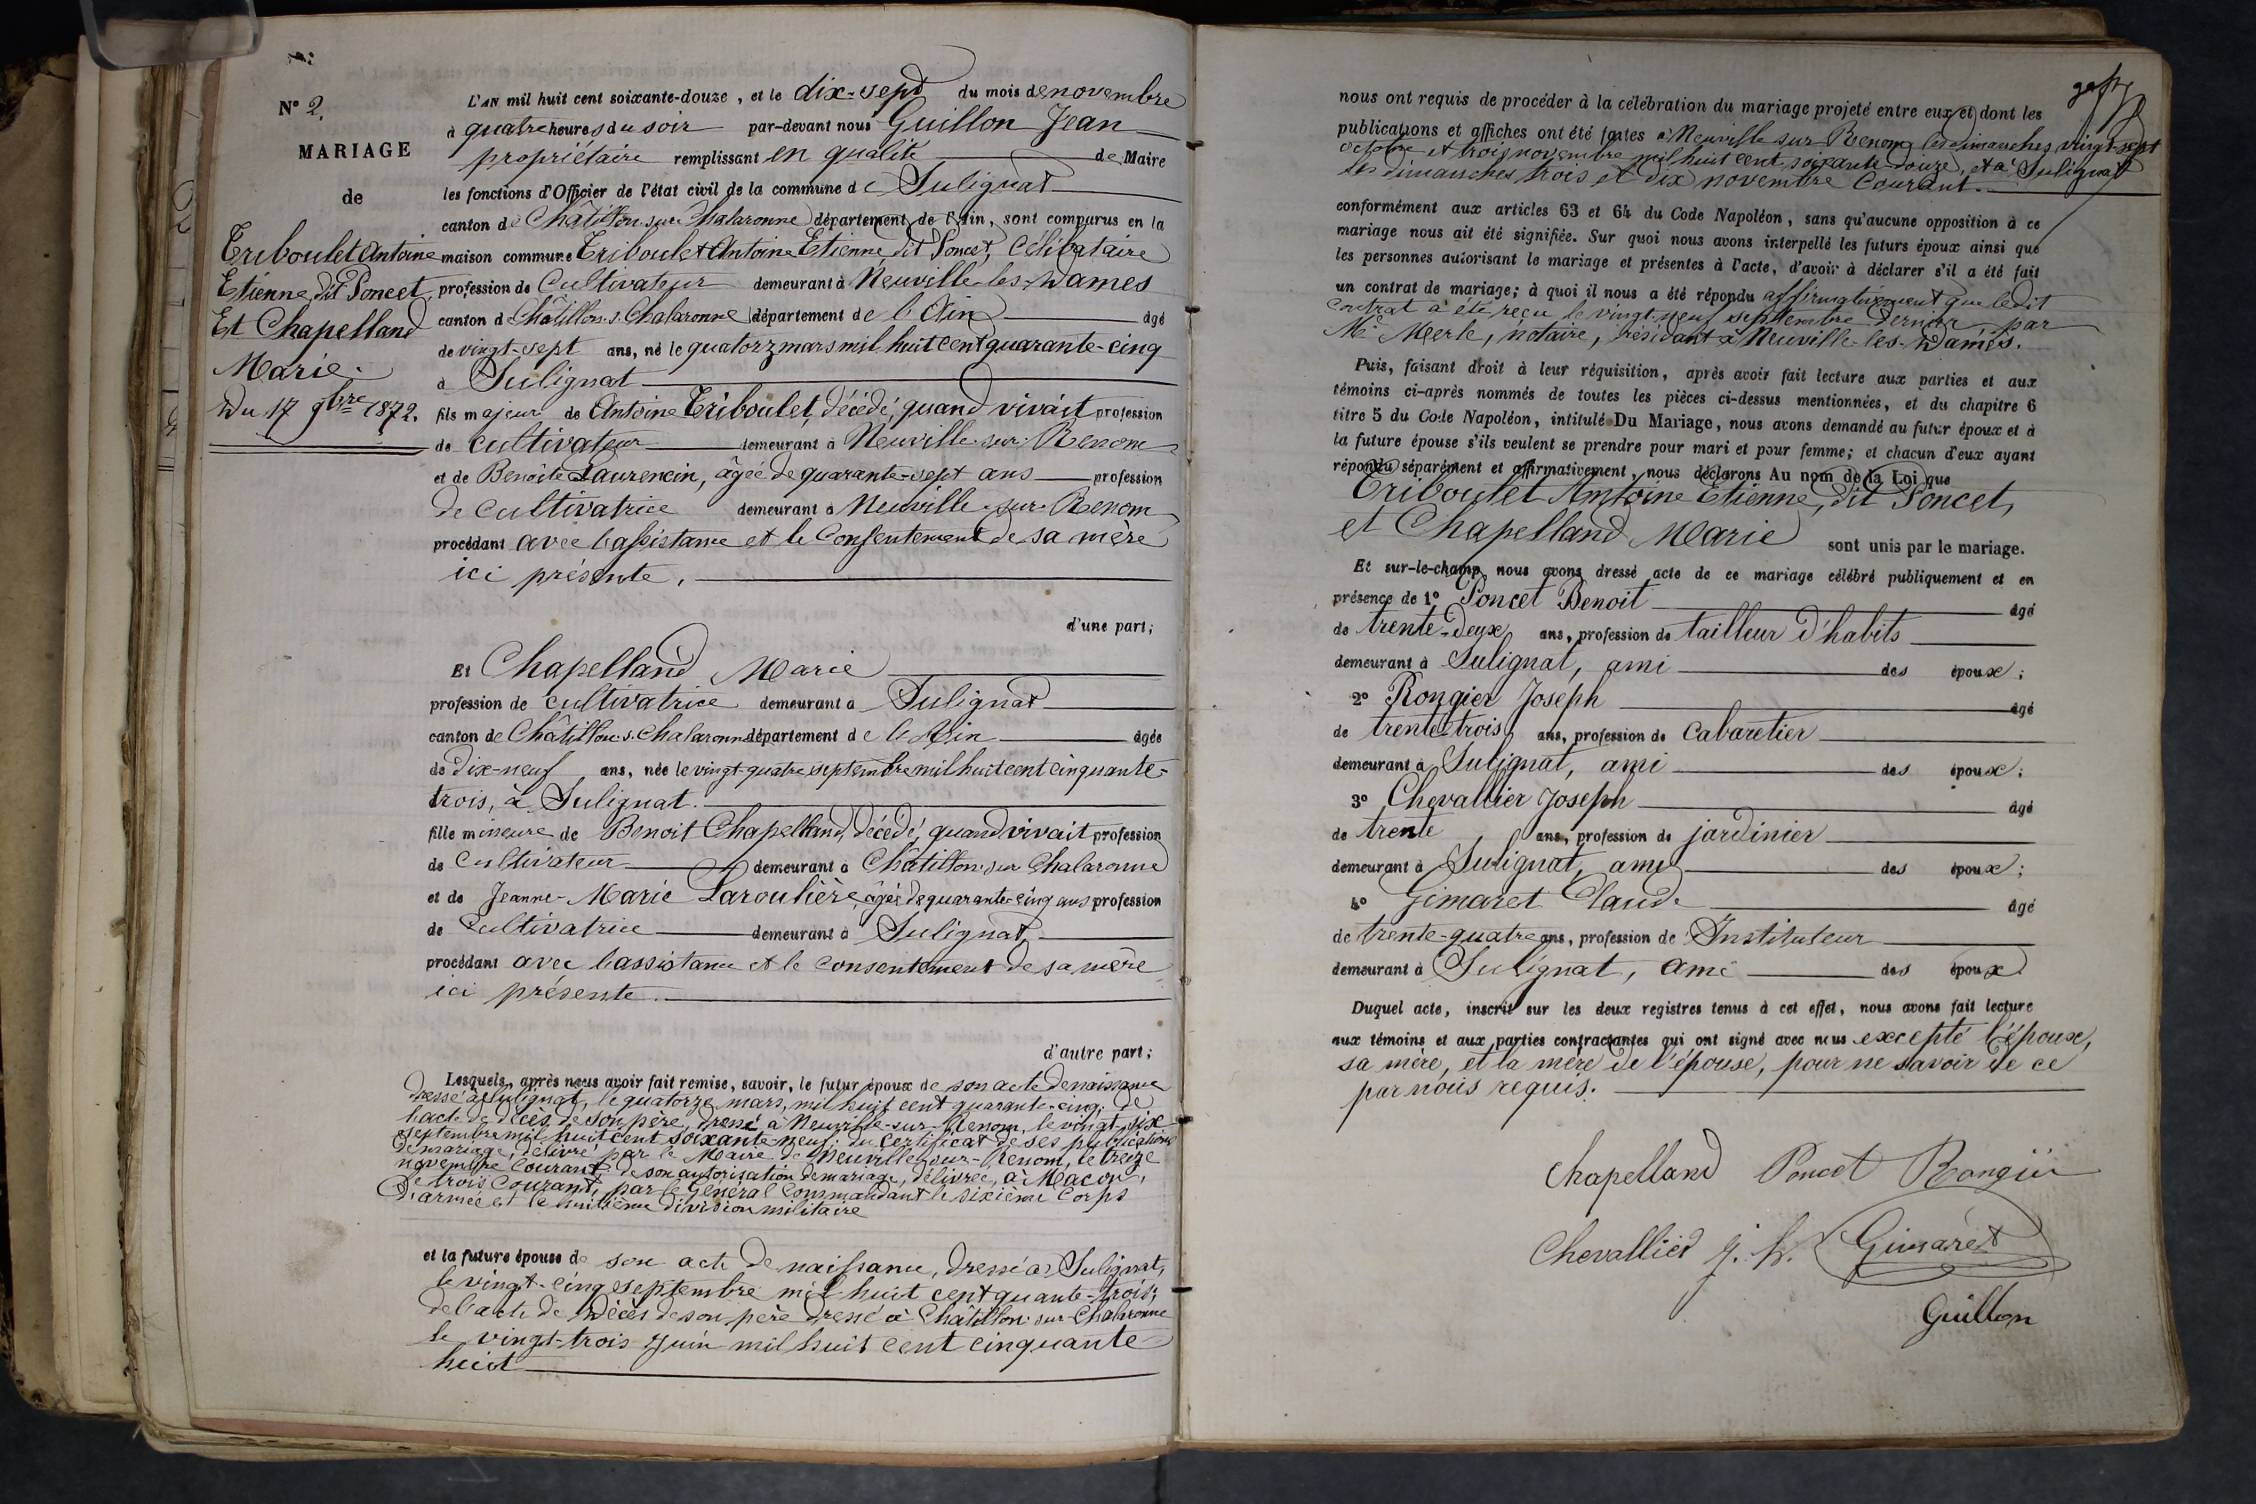 N° 2.
MARIAGE
de
Triboulet Antoine
Etienne, dit Poncet,
Et Chapelland
Marie.
Du 17 9bre 1872.
L'AN mil huit cent soixante-douze, et le dix-sept du mois de novembre
à quatre heures du soir par-devant nous Guillon Jean
propriétaire remplissant en qualité de Maire
les fonctions d'Officier de l'état civil de la commune de Sulignat
canton de Châtillon-sur-Chalaronne département de l'Ain, sont comparus en la
maison commune Triboulet Antoine Etienne dit Poncet, célibataire
profession de Cultivateur demeurant à Neuville-les-Dames
canton de Châtillon-s.-Chalaronne département de l'Ain âgé
de vingt-sept ans, né le quatorz mars mil huit cent quarante-cinq
à Sulignat
fils majeur de Antoine Triboulet, décédé, quand vivait profession
de cultivateur demeurant à Neuville-sur-Renom
et de Benoîte Laurencin, âgée de quarante-sept ans profession
de cultivatrice demeurant à Neuville-sur-Renom
procédant avec l'assistance et le consentement de sa mère
ici présente.
d'une part;
Et Chapelland Marie
profession de cultivatrice demeurant à Sulignat
canton de Châtillon-s.-Chalaronne département de l'Ain âgée
de dix-neuf ans, née le vingt-quatre septembre mil huit cent cinquante-
trois, à Sulignat.
fille mineure de Benoit Chapelland, décédé, quand vivait profession
de Cultivateur demeurant à Châtillon-sur-Chalaronne
et de Jeanne-Marie Laroulière, âgée de quarante-cinq ans profession
de Cultivatrice demeurant à Sulignat
procédant avec l'assistance et le consentement de sa mère
ici présente.
d'autre part;
Lesquels, après nous avoir fait remise, savoir, le futur époux de son acte de naissance
dressé à Sulignat, le quatorze mars, mil huit cent quarante-cinq; de
l'acte de décès de son père, dressé à Neuville-sur-Renom, le vingt-six
septembre mil huit cent soixante-neuf; du certificat de ses publications
de mariage, délivré par le Maire de Neuville-sur-Renom, le treize
novembre courant, de son autorisation de mariage, délivrée, à Macon,
le trois courant, par le Général Commandant le sixième Corps
d'armée et le huitième division militaire
et la future épouse de son acte de naissance, dressé à Sulignat,
le vingt-cinq septembre mil huit cent quante-trois;
de l'acte de décès de son père dressé à Châtillon-sur-Chalaronne
le vingt-trois Juin mil huit cent cinquante
huit
nous ont requis de procéder à la célébration du mariage projeté entre eux et dont les
publications et affiches ont été faites à Neuville sur Renom les dimanches vingt-sept
octobre et trois novembre mil huit cent soixante-douze, et à Sulignat
les dimanches trois et dix novembre courant.
conformément aux articles 63 et 64 du Code Napoléon, sans qu'aucune opposition à ce
mariage nous ait été signifiée. Sur quoi nous avons interpellé les futurs époux ainsi que
les personnes autorisant le mariage et présentes à l'acte, d'avoir à déclarer s'il a été fait
un contrat de mariage; à quoi il nous a été répondu affirmativement que ledit
contrat a été reçu le vingt-neuf septembre dernier par
Me Merle, notaire, résidant à Neuville-les-Dames.
Puis, faisant droit à leur réquisition, après avoir fait lecture aux parties et aux
témoins ci-après nommés de toutes les pièces ci-dessus mentionnées, et du chapitre 6
titre 5 du Code Napoléon, intitulé Du Mariage, nous avons demandé au futur époux et à
la future épouse s'ils veulent se prendre pour mari et pour femme; et chacun d'eux ayant
répondu séparément et affirmativement, nous déclarons Au nom de la Loi que
Triboulet Antoine Etienne, dit Poncet,
et Chapelland Marie sont unis par le mariage.
Et sur-le-champ, nous avons dressé acte de ce mariage célébré publiquement et en
présence de 1° Poncet Benoit âgé
de trente-deux ans, profession de tailleur d'habits
demeurant à Sulignat, ami des époux;
2° Rongier Joseph âgé
de trente-trois ans, profession de Cabaretier
demeurant à Sulignat, ami des époux;
3° Chevallier Joseph âgé
de trente ans, profession de jardinier
demeurant à Sulignat, ami des époux;
4° Gimaret Claude âgé
de trente-quatre ans, profession de Instituteur
demeurant à Sulignat, ami des époux
Duquel acte, inscrit sur les deux registres tenus à cet effet, nous avons fait lecture
aux témoins et aux parties contractantes qui ont signé avec nous excepté l'époux,
sa mère, et la mère de l'épouse, pour ne savoir de ce
par nous requis.
Chapelland Poncet Rongier
Chevallier j. h. Gimaret
Guillon